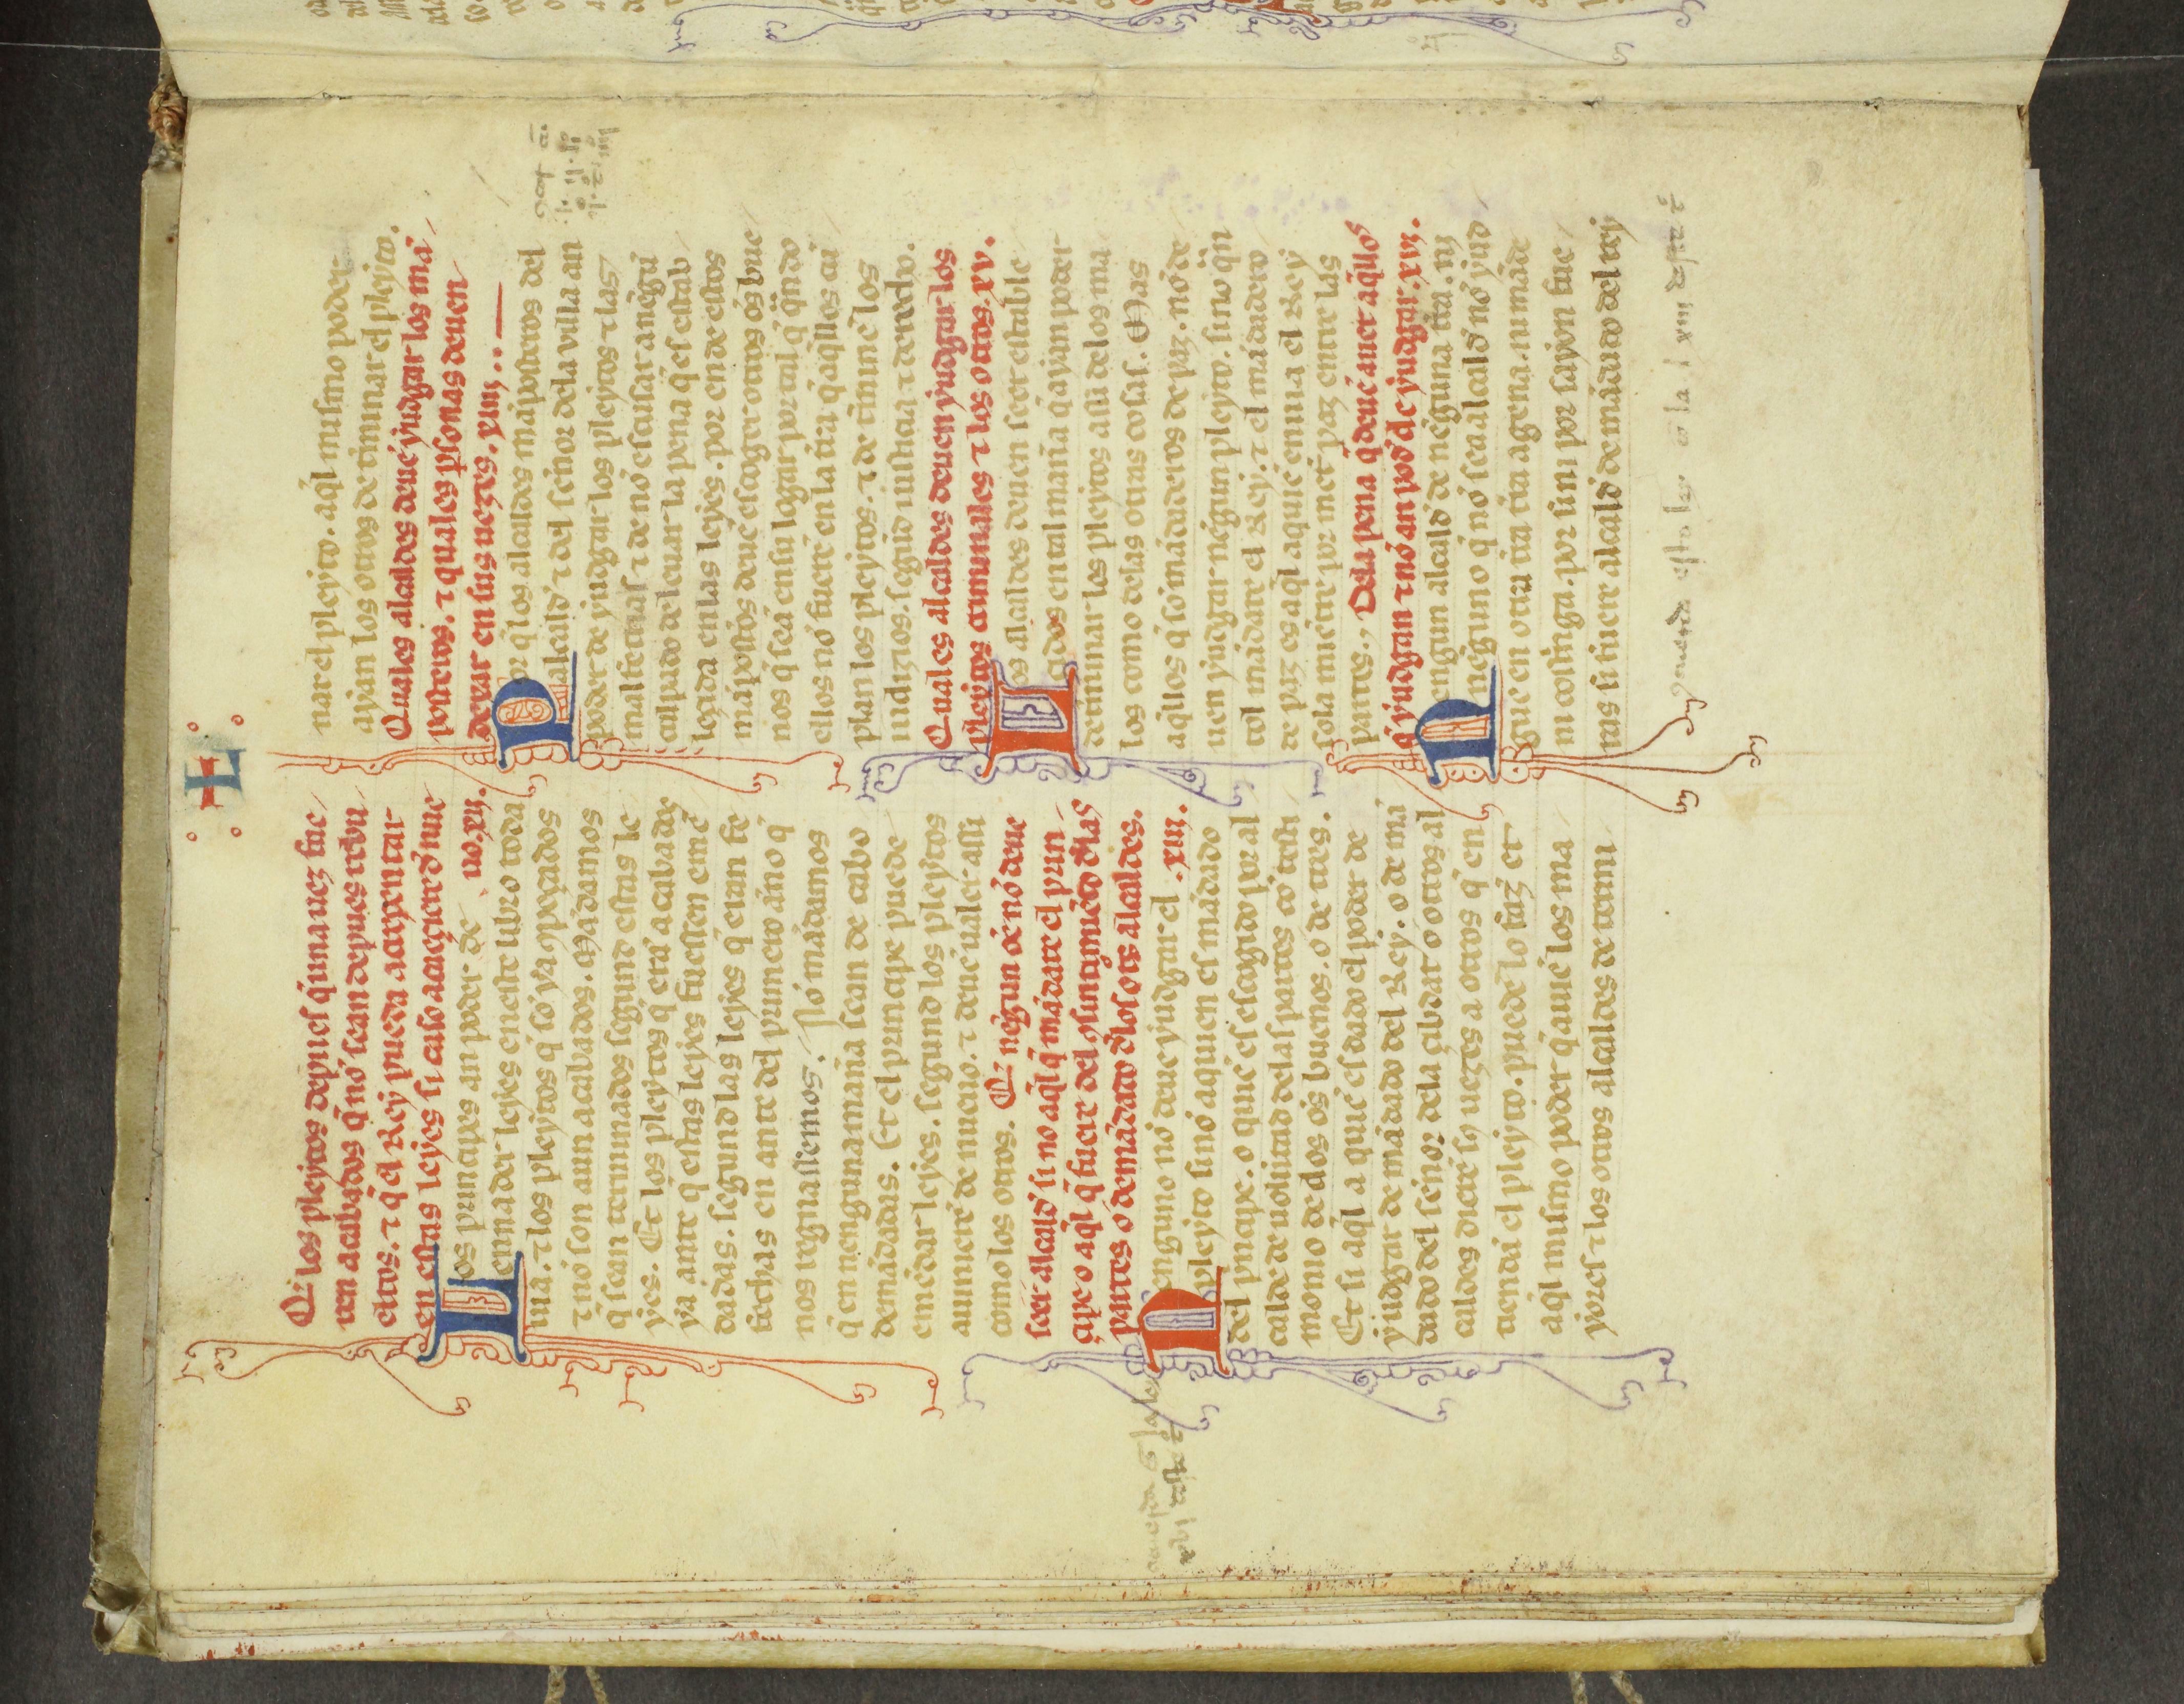 L
Q̄ los pleytos depues q̄ una uez fue
ren acabados q̄ nō sean depues rebu
eltos. ⁊ q̄ el Rey pueda acreçentar
en estas leyes si caso acaeçiere d̄ nue
uo. xii.
Los principes an poder de
ennader leyes en este libro toda
uia. ⁊ los pleytos q̄ sō ya cōpeçados
⁊ nō son aun acabados. Mādamos
q̄ sean terminados segund estas le
yes. Et los pleytos q̄ erā acabados
ya ante q̄ estas leyes fuessen emē
dadas. segund las leyes q̄ eran fe
chas en ante del primero año q̄
nos regnassemos. Nō mādamos
q̄ en nenguna mañā sean de cabo
demādadas. Et el principe puede
emēdar leyes. segund los pleytos
auinierē de nueuo. ⁊ deuē ualer assi
como los otros. Q̄ nēgun ōe nō deue
seer alcald̄ si no aq̄l q̄ mādare el prin
çipe o aq̄l q̄ fuere del cōsintimiēto d̄las
partes o de mādado d̄los ots̄ alcaldes.
.xiii.
Nenguno nō deue yudgar el
pleyto sinō a quien es mādado
del pricipe. o qui es escogido por al
calde de uolūtad delas partes cō testi
monio de dos ōs buenos. o de tres.
Et si aq̄l a qui es dado el poder de
yudgar de mādado del Rey. o de mā
dado del señor dela çibdat o otros al
caldes dierē sꝯ uezes a otros q̄ en
tiendā el pleyto. puedēlo faz̄ et
aq̄l mismo poder q̄ auiē los ma
yores ⁊ los otros alcaldes de termi
nar el pleyto. aq̄l mismo poder
ayan los otros de t̄minar el pleyto.
Quales alcaldes deuē yudgar los mā
posteros. ⁊ quales p̄sonas deuen
dexar en sus uezes. xiiii..
Por q̄ los alcaldes māposteros del
alcald̄ ⁊ del señor dela villa an
poder de yudgar los pleytos ⁊ las
malfetrias ⁊ de nō escusar a nēgū
culpado de leuar la pena q̄ es estab
leçida en las leyes. por ende estos
māpostos deuē escoger otros ōs bue
nos q̄ seā en su logar por tal q̄ q̄ndo
ellos nō fuerē en la t̄ra q̄ aq̄llos cū
plan los pleytos. ⁊ de t̄minē los
iudizios. segūd iusticia ⁊ derecho.
Quales alcaldes deuen yudgar los
pleytos criminales ⁊ los otros. xv.
Los alcaldes deuen seer estable
çidos en tal mañā q̄ ayan poder
determinar los pleytos assi delos ma
los como delas otras cosas. Mas
aq̄llos q̄ sō mādaderos de paz. nō de
uen yudgar nēgun pleyto. sino q̄n
tol mādare el Rey. ⁊ el mādadero
de paz es aq̄l a qui ēnuia el Rey
sola miētre por met̄ paz entre las
partes. Dela pena q̄ deuē auer aq̄llos
q̄ yudgan ⁊ nō an pod̄ d̄ yudgar. xvi.
Nengun alcald̄ de nēguna t̄ra. ni
nēguno q̄ nō sea alcald̄ nō yud
gue en otra t̄ra agena. ni māde
ni costinga. por si ni por sayon fue
ras si fuere alcald̄ de mādado del rey